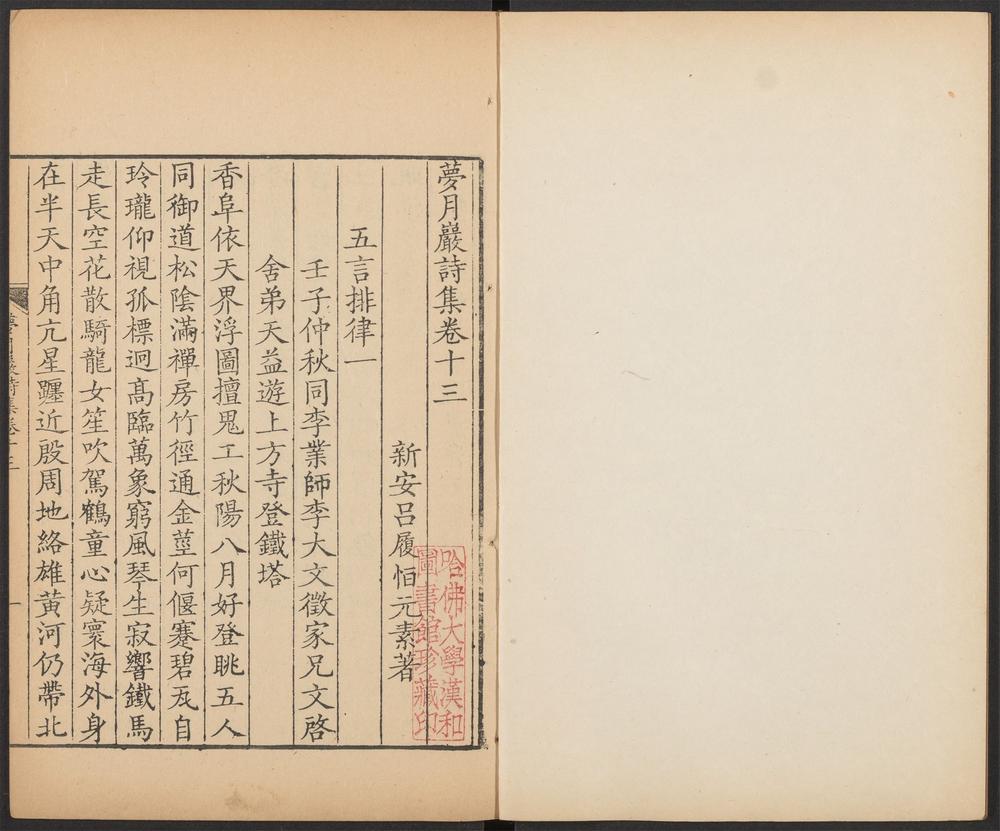 夢月巖詩集卷十三
新安呂履恒元素著
五言排律一
壬子仲秋同李業師李大文徵家兄文啓
舍弟天益遊上方寺登鐵塔
香阜依天界浮圖擅鬼工秋陽八月好登眺五人
同御道松陰滿禪房竹徑通金莖何偃蹇碧瓦自
玲瓏仰視孤標迥高臨萬象窮風琴生寂響鐵馬
走長空花散騎龍女笙吹駕鶴童心疑寰海外身
在半天中角亢星躔近殷周地絡雄黃河仍帶北
夢月巖詩集卷十三
一
哈佛大學漢和
圖書館珍藏印